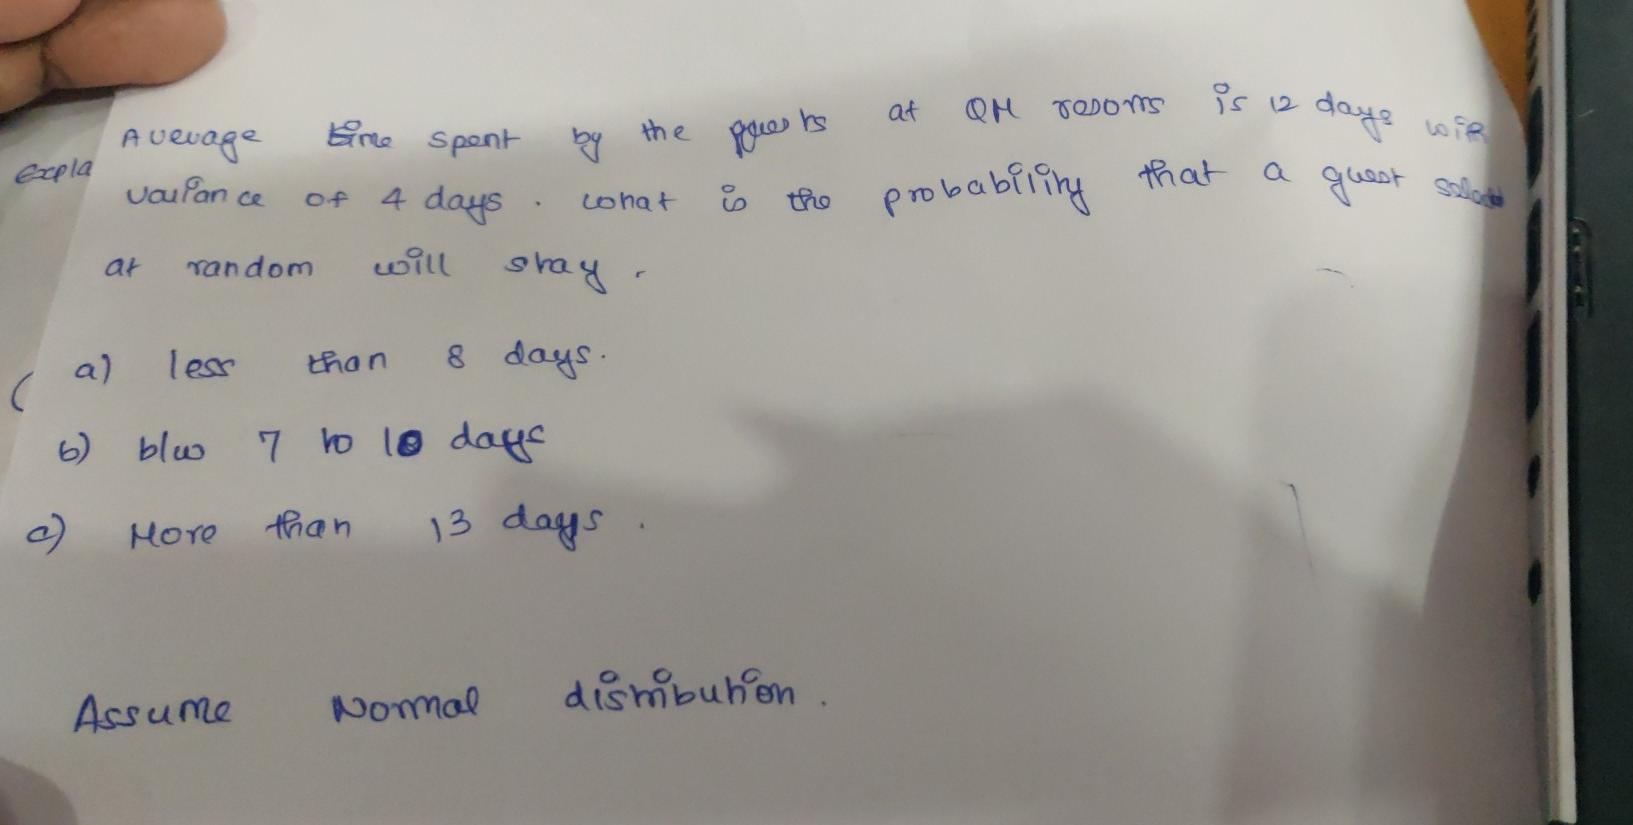 Average time spent by the guests at QM rooms is 12 days with
Expla
variance of 4 days. what is the probability that a guest
at random will stay.
a) less than 8 days.
b) b/w 7 to 10 days
c) More than 13 days.
Assume Normal distribution.